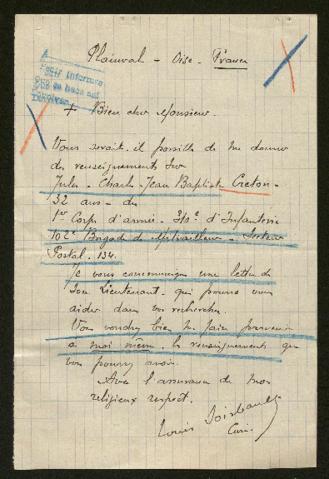 Plainval - Oise - France
+ Bien cher Monsieur.
Vous serait-il possible de me donner
des renseignements sur
Jules - Charles - Jean Baptiste Creton -
32 ans - du
1er Corps d'armée - 310e d'Infanterie
102e Brigade de Mitrailleur - Secteur
Postal. 134.
Je vous communique une lettre de
son Lieutenant - qui pourra vous
aider dans vos recherches.
Vous voudrez bien me faire parvenir
à moi même, les renseignements que
vous pourrez avoir.
Avec l'assurance de mon
religieux respect.
Louis
Curé.